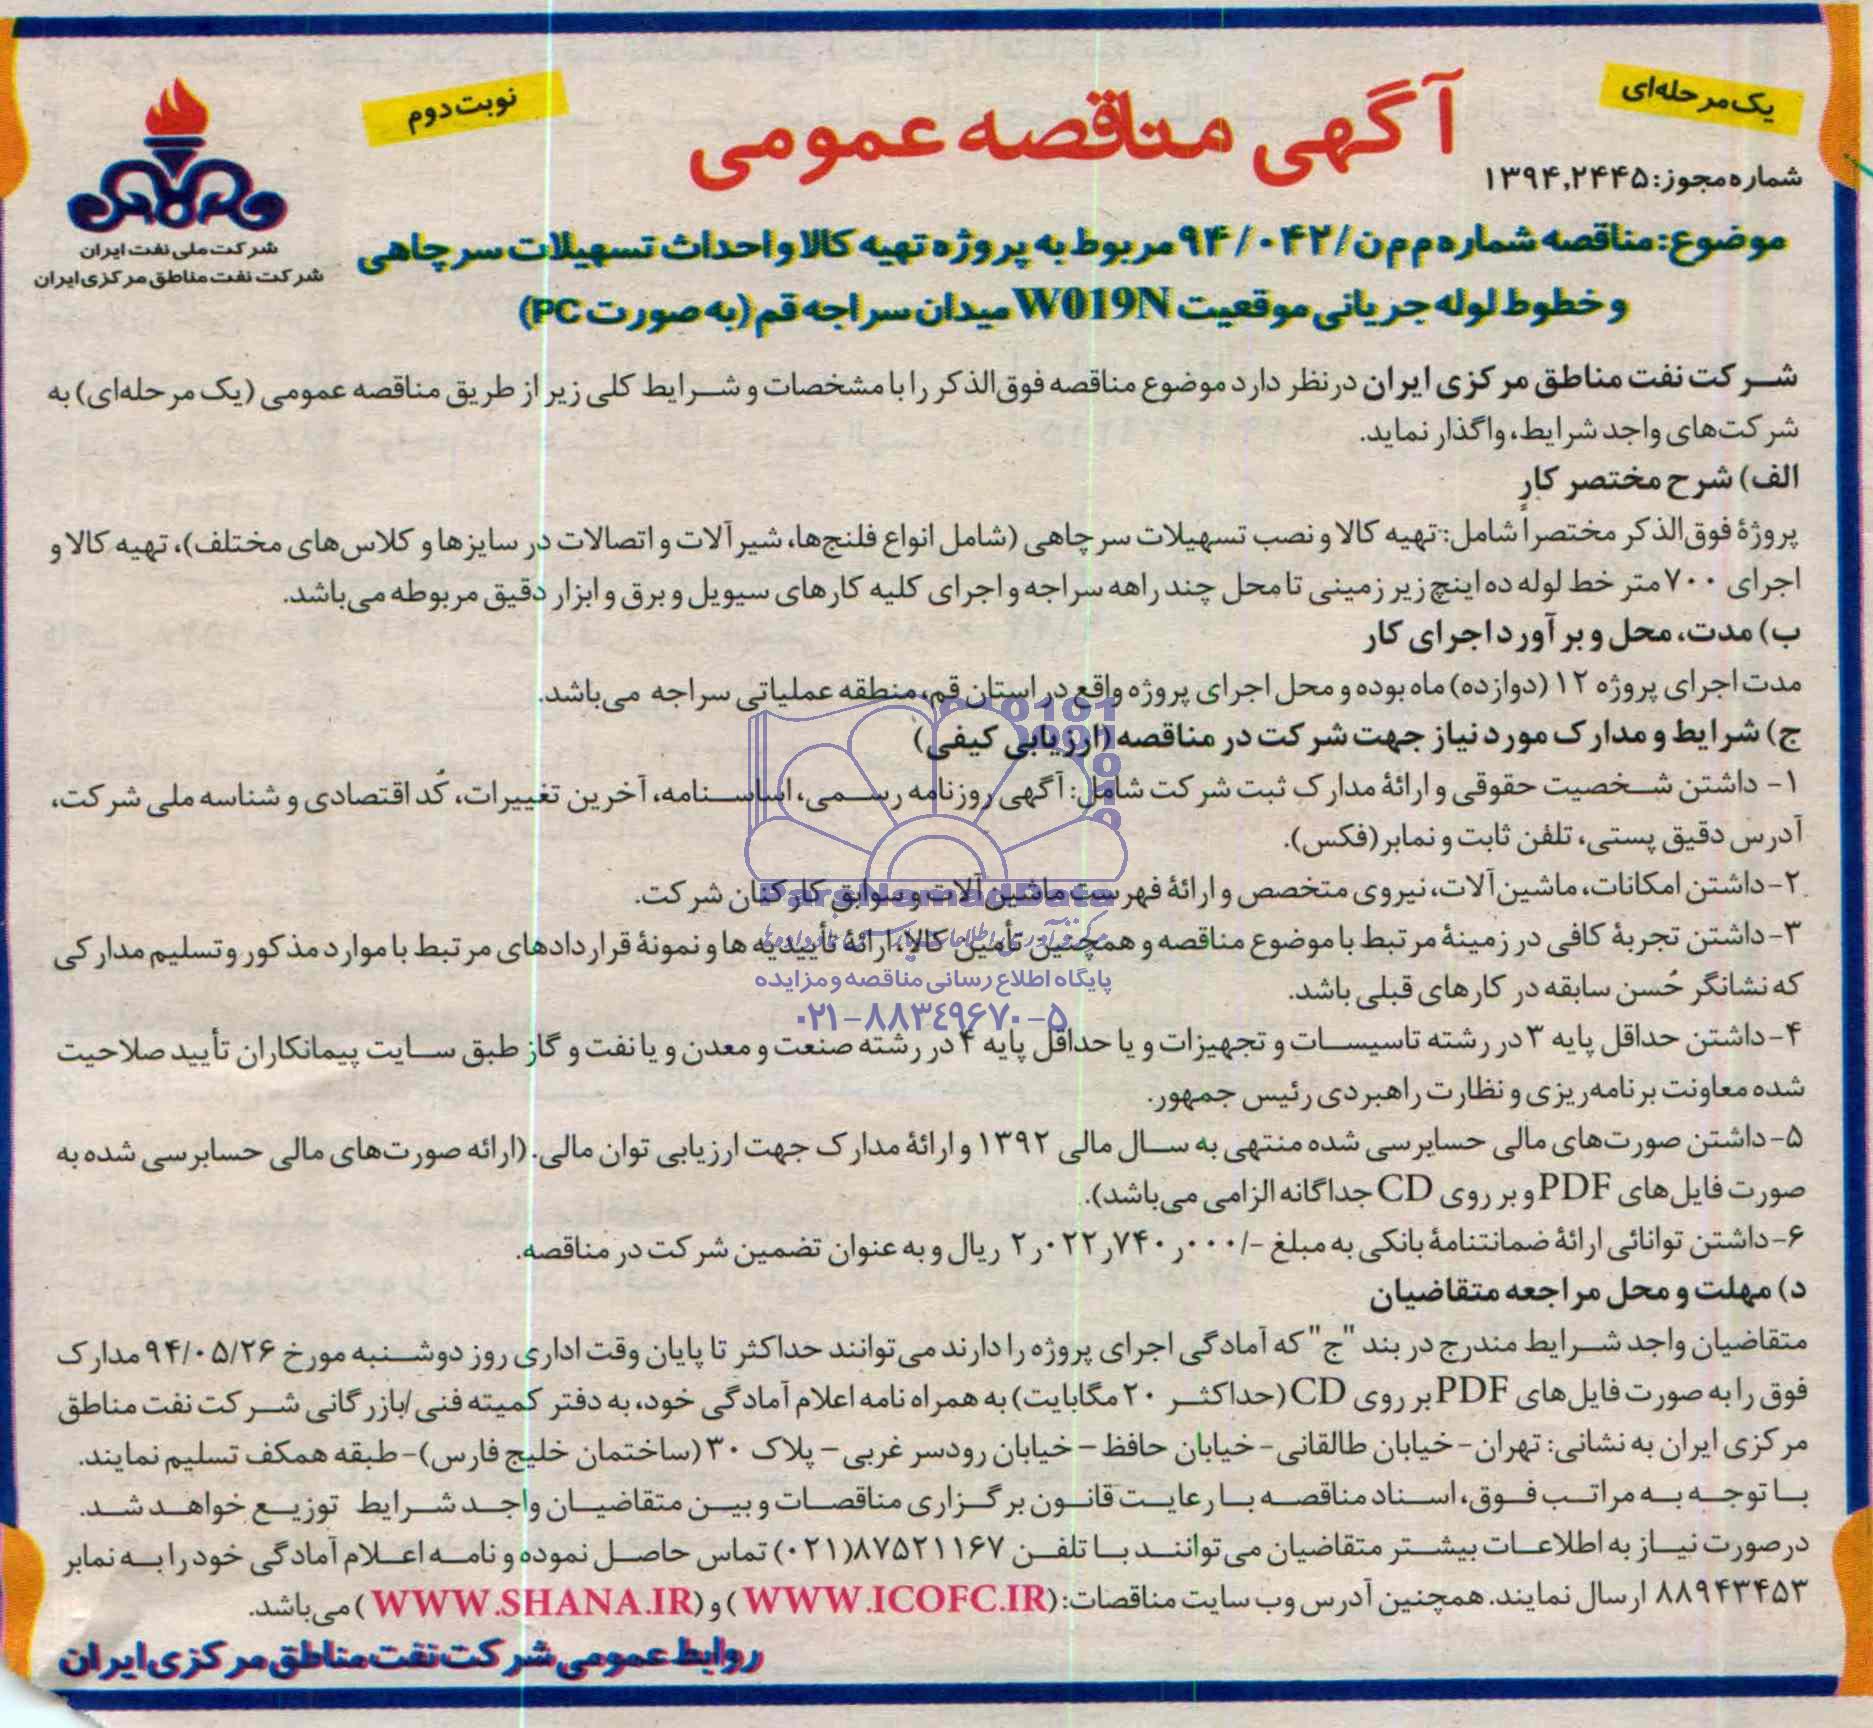 یک مرحله‌ای
آگهی مناقصه عمومی
نوبت دوم
شماره مجوز: ۱۳۹۴,۲۴۴۵
شرکت ملی نفت ایران
شرکت نفت مناطق مرکزی ایران
موضوع: مناقصه شماره م م ن/۹۴/۰۴۲ مربوط به پروژه تهیه کالا و احداث تسهیلات سرچاهی
و خطوط لوله جریانی موقعیت W019N میدان سراجه قم (به صورت PC)
شرکت نفت مناطق مرکزی ایران درنظر دارد موضوع مناقصه فوق‌الذکر را با مشخصات و شرایط کلی زیر از طریق مناقصه عمومی (یک مرحله‌ای) به
شرکت‌های واجد شرایط، واگذار نماید.
الف) شرح مختصر کار
پروژهٔ فوق‌الذکر مختصراً شامل: تهیه کالا و نصب تسهیلات سرچاهی (شامل انواع فلنج‌ها، شیرآلات و اتصالات در سایزها و کلاس‌های مختلف)، تهیه کالا و
اجرای ۷۰۰ متر خط لوله ده اینچ زیرزمینی تا محل چند راهه سراجه و اجرای کلیه کارهای سیویل و برق و ابزار دقیق مربوطه می‌باشد.
ب) مدت، محل و برآورد اجرای کار
مدت اجرای پروژه ۱۲ (دوازده) ماه بوده و محل اجرای پروژه واقع در استان قم، منطقه عملیاتی سراجه می‌باشد.
ج) شرایط و مدارک مورد نیاز جهت شرکت در مناقصه (ارزیابی کیفی)
۱- داشتن شخصیت حقوقی و ارائهٔ مدارک ثبت شرکت شامل: آگهی روزنامه رسمی، اساسنامه، آخرین تغییرات، کُد اقتصادی و شناسه ملی شرکت،
آدرس دقیق پستی، تلفن ثابت و نمابر (فکس).
۲-داشتن امکانات، ماشین‌آلات، نیروی متخصص و ارائهٔ فهرست ماشین‌آلات و سوابق کارکنان شرکت.
ParsNamadData
۳-داشتن تجربهٔ کافی در زمینهٔ مرتبط با موضوع مناقصه و همچنین تأمین کالا، ارائهٔ تأییدیه ها و نمونهٔ قراردادهای مرتبط با موارد مذکور و تسلیم مدارکی
پایگاه اطلاع رسانی مناقصه و مزایده
که نشانگر حُسن سابقه در کارهای قبلی باشد.
۰۲۱-۸۸۳۴۹۶۷۰-۵
۴-داشتن حداقل پایه ۳ در رشته تاسیسات و تجهیزات و یا حداقل پایه ۴ در رشته صنعت و معدن و یا نفت و گاز طبق سایت پیمانکاران تأیید صلاحیت
شده معاونت برنامه‌ریزی و نظارت راهبردی رئیس جمهور.
۵-داشتن صورت‌های مالی حسابرسی شده منتهی به سال مالی ۱۳۹۲ و ارائهٔ مدارک جهت ارزیابی توان مالی. (ارائه صورت‌های مالی حسابرسی شده به
صورت فایل‌های PDF و بر روی CD جداگانه الزامی می‌باشد).
۶-داشتن توانائی ارائهٔ ضمانتنامهٔ بانکی به مبلغ -/۲ر۰۲۲ر۷۴۰ر۰۰۰ ریال و به عنوان تضمین شرکت در مناقصه.
د) مهلت و محل مراجعه متقاضیان
متقاضیان واجد شرایط مندرج در بند "ج" که آمادگی اجرای پروژه را دارند می‌توانند حداکثر تا پایان وقت اداری روز دوشنبه مورخ ۹۴/۰۵/۲۶ مدارک
فوق را به صورت فایل‌های PDF بر روی CD (حداکثر ۲۰ مگابایت) به همراه نامه اعلام آمادگی خود، به دفتر کمیته فنی/بازرگانی شرکت نفت مناطق
مرکزی ایران به نشانی: تهران- خیابان طالقانی- خیابان حافظ – خیابان رودسر غربی – پلاک ۳۰ (ساختمان خلیج فارس)- طبقه همکف تسلیم نمایند.
با توجه به مراتب فوق، اسناد مناقصه با رعایت قانون برگزاری مناقصات و بین متقاضیان واجد شرایط توزیع خواهد شد.
درصورت نیاز به اطلاعات بیشتر متقاضیان می‌توانند با تلفن ۸۷۵۲۱۱۶۷(۰۲۱) تماس حاصل نموده و نامه اعلام آمادگی خود را به نمابر
۸۸۹۴۳۴۵۳ ارسال نمایند. همچنین آدرس وب سایت مناقصات: (WWW.ICOFC.IR) و (WWW.SHANA.IR) می‌باشد.
روابط عمومی شرکت نفت مناطق مرکزی ایران